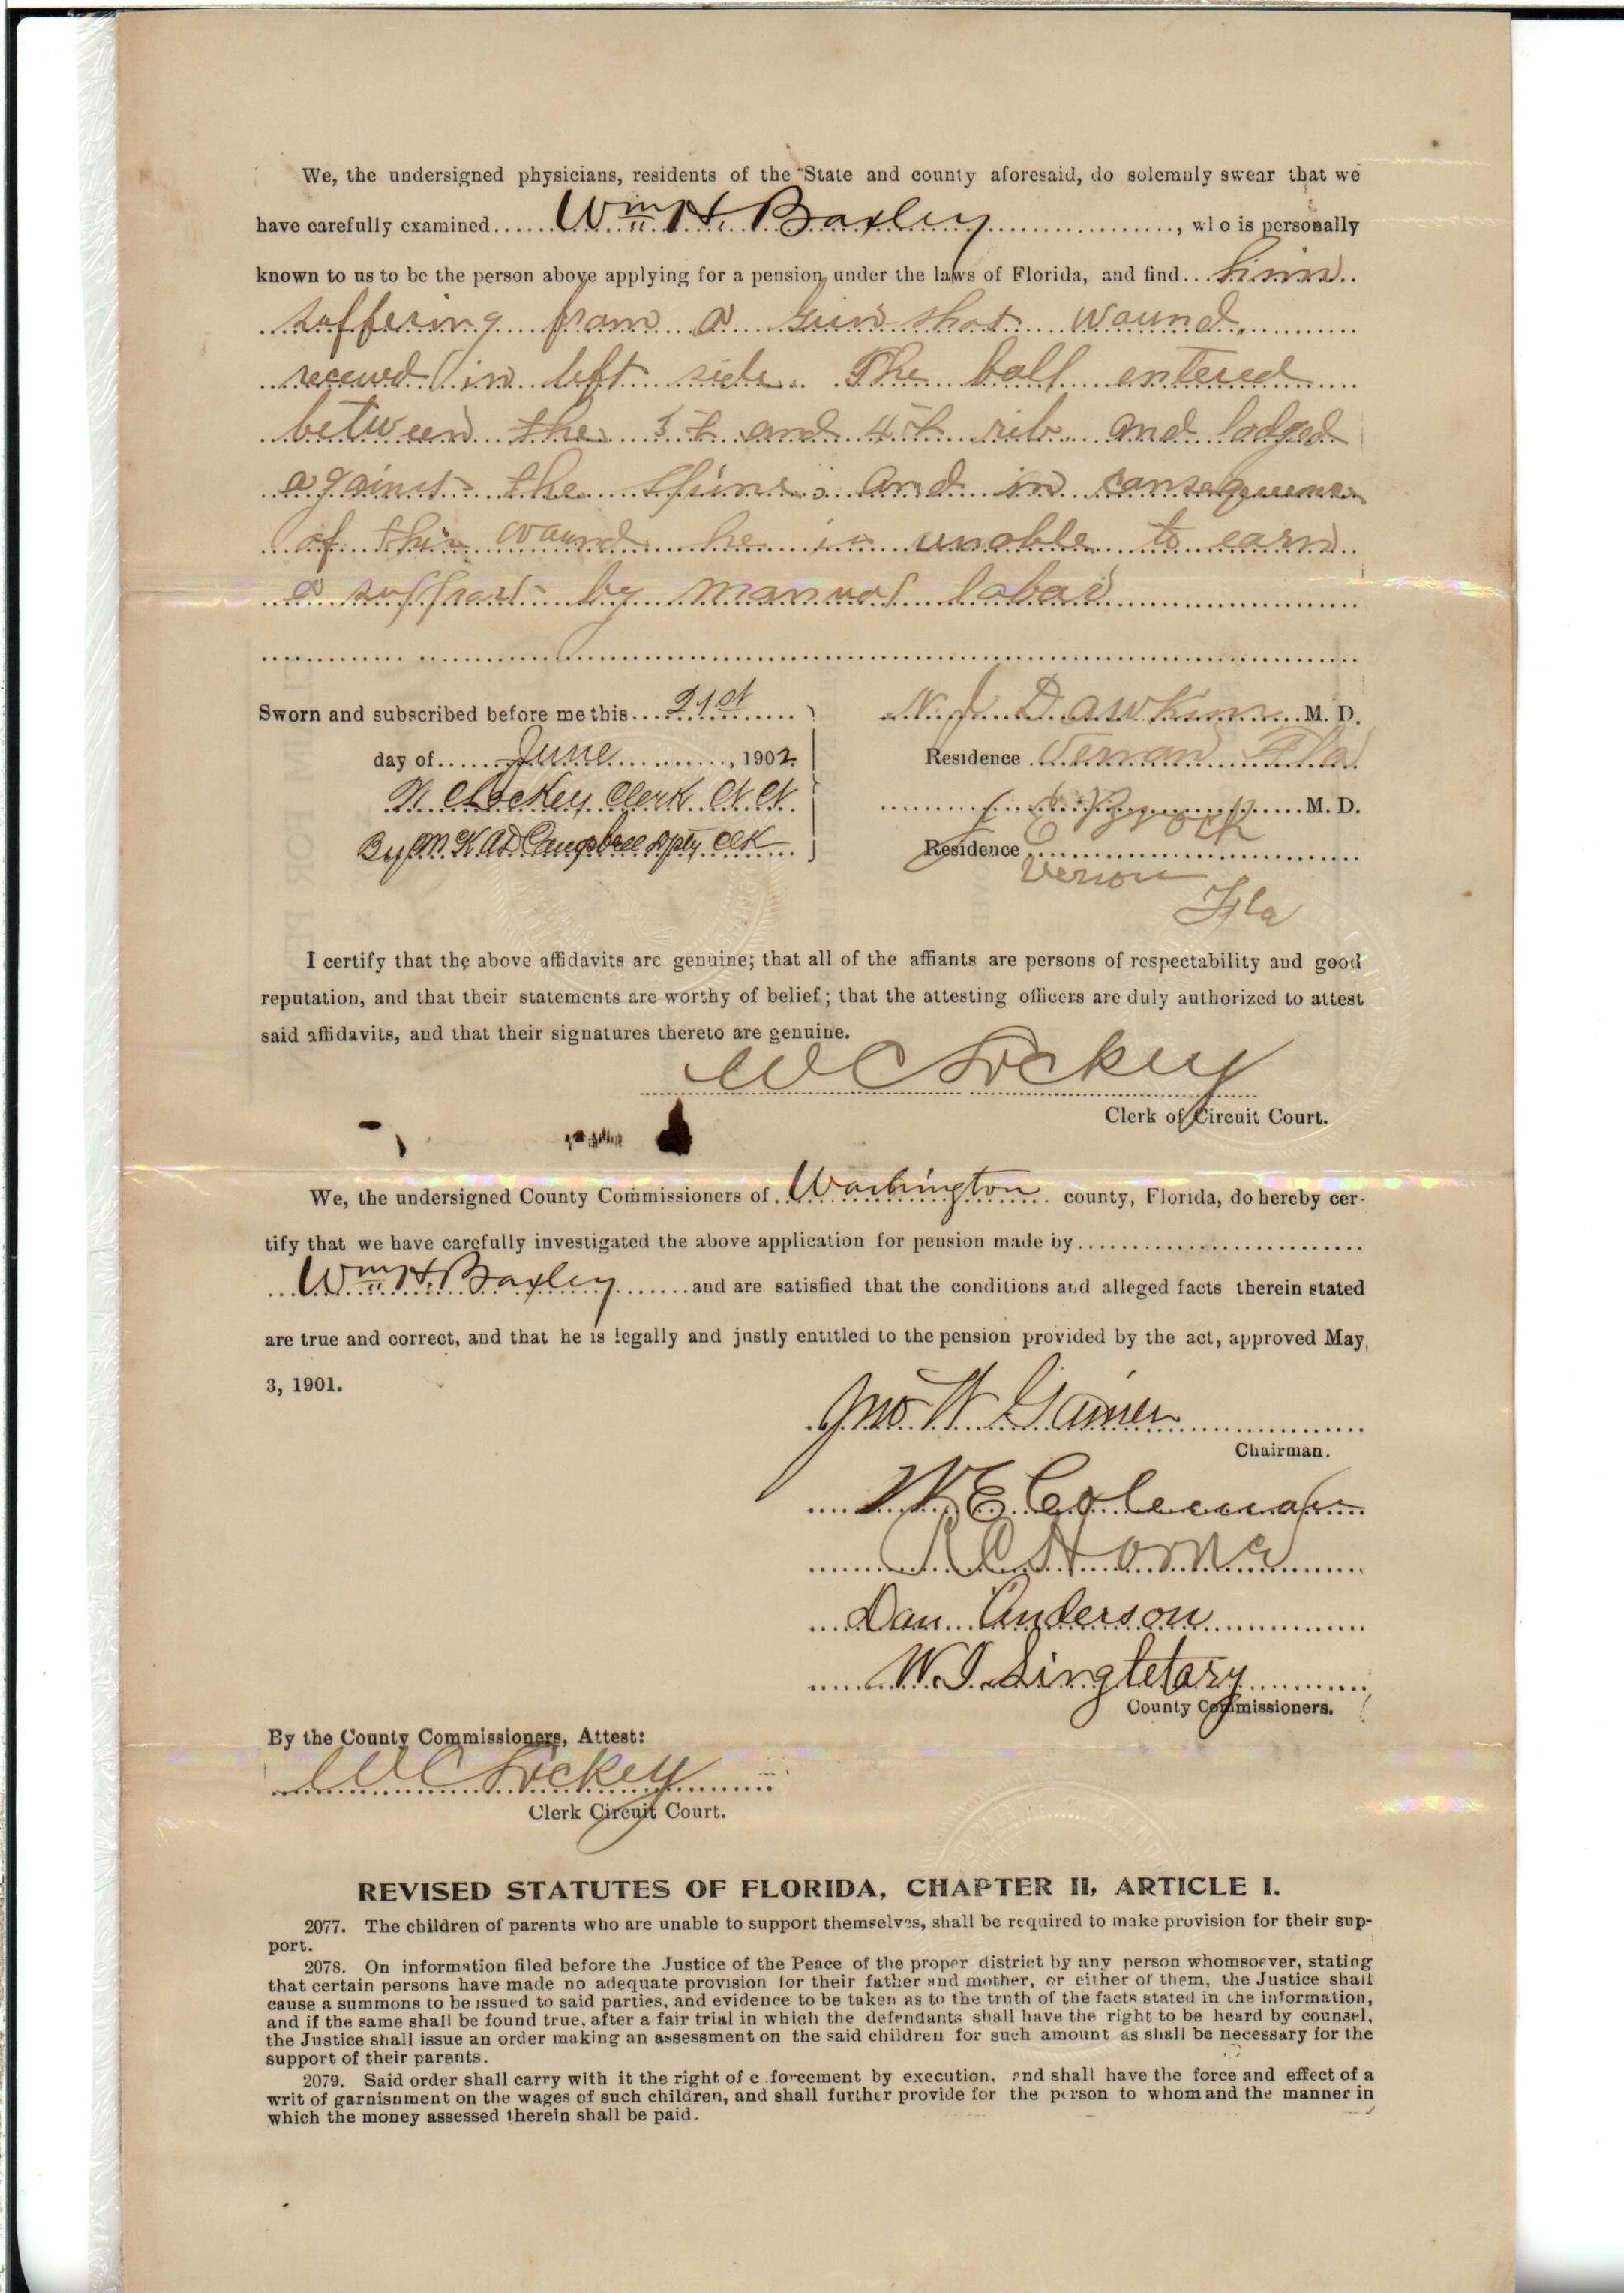 We, the undersigned physicians, residents of the State and county aforesaid, do solemnly swear that we
have carefully examined Wm H. Baxley, who is personally
known to us to be the person above applying for a pension under the laws of Florida, and find him
suffering from a Gun shot wound.
received in left side. The ball entered
between the 3th and 4th rib and lodged
against the spine; and in consequence
of this wound he is unable to earn
a support by manual labor
Sworn and subscribed before me this 21st
day of June, 1902
W. C Lockey Clerk
By Campbell Dpty Clk
N. J. Dawkins M. D.
Residence Vernon Fla
M. D.
Residence
Vernon
Fla
I certify that the above affidavits are genuine; that all of the affiants are persons of respectability and good
reputation, and that their statements are worthy of belief; that the attesting officers are duly authorized to attest
said affidavits, and that their signatures thereto are genuine.
W C Lockey
Clerk of Circuit Court.
We, the undersigned County Commissioners of Washington county, Florida, do hereby cer-
tify that we have carefully investigated the above application for pension made by
Wm H. Baxley and are satisfied that the conditions and alleged facts therein stated
are true and correct, and that he is legally and justly entitled to the pension provided by the act, approved May,
3, 1901.
Jno W Gainer
Chairman.
W E Coleman
Horne
Dan Anderson
W. I. Singletary
County Commissioners.
By the County Commissioners, Attest:
W C Lockey
Clerk Circuit Court.
REVISED STATUTES OF FLORIDA, CHAPTER II, ARTICLE I.
2077. The children of parents who are unable to support themselves, shall be required to make provision for their sup-
port.
2078. On information filed before the Justice of the Peace of the proper district by any person whomsoever, stating
that certain persons have made no adequate provision for their father and mother, or either of them, the Justice shall
cause a summons to be issued to said parties, and evidence to be taken as to the truth of the facts stated in the information,
and if the same shall be found true, after a fair trial in which the defendants shall have the right to be heard by counsel,
the Justice shall issue an order making an assessment on the said children for such amount as shall be necessary for the
support of their parents.
2079. Said order shall carry with it the right of e forcement by execution, and shall have the force and effect of a
writ of garnishment on the wages of such children, and shall further provide for the person to whom and the manner in
which the money assessed therein shall be paid.